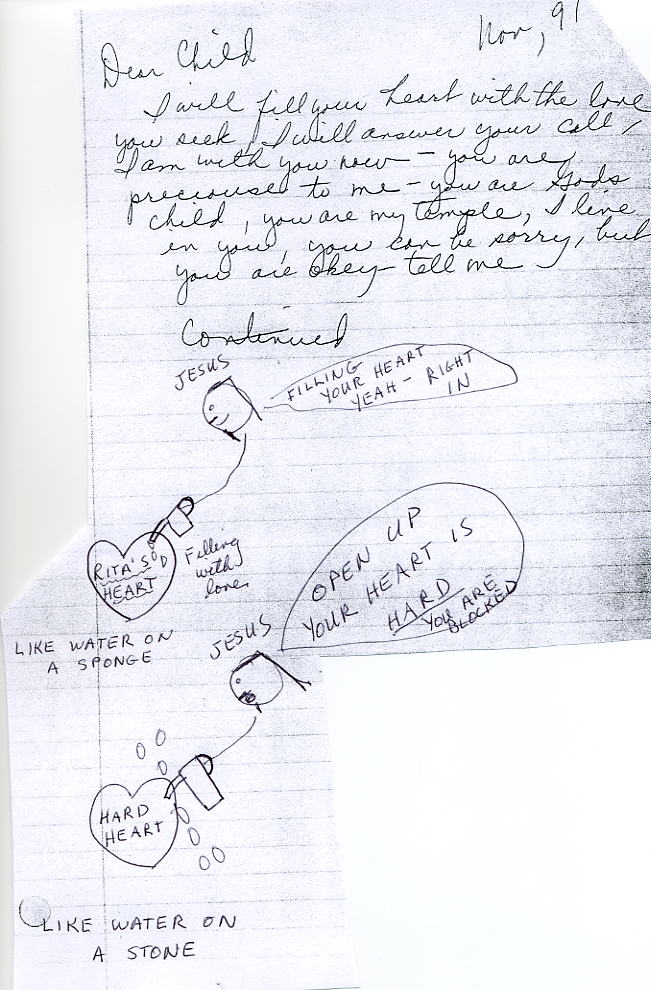 Nov, 91
Dear Child
I will fill your heart with the love
you seek, I will answer your call,
I am with you now - you are
preciouse to me - you are Gods
child, you are my temple, I live
in you, you can be sorry, but
you are okey - tell me
Continued
JESUS
FILLING
YOUR HEART
YEAH - RIGHT
IN
RITA'S
HEART
Filling
with
love
LIKE WATER ON
A SPONGE
JESUS
OPEN UP
YOUR HEART IS
HARD
YOU ARE
BLOCKED
HARD
HEART
LIKE WATER ON
A STONE